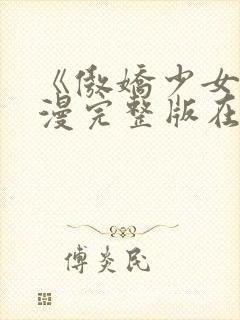 《傲娇少女
漫完整版在
傅炎民